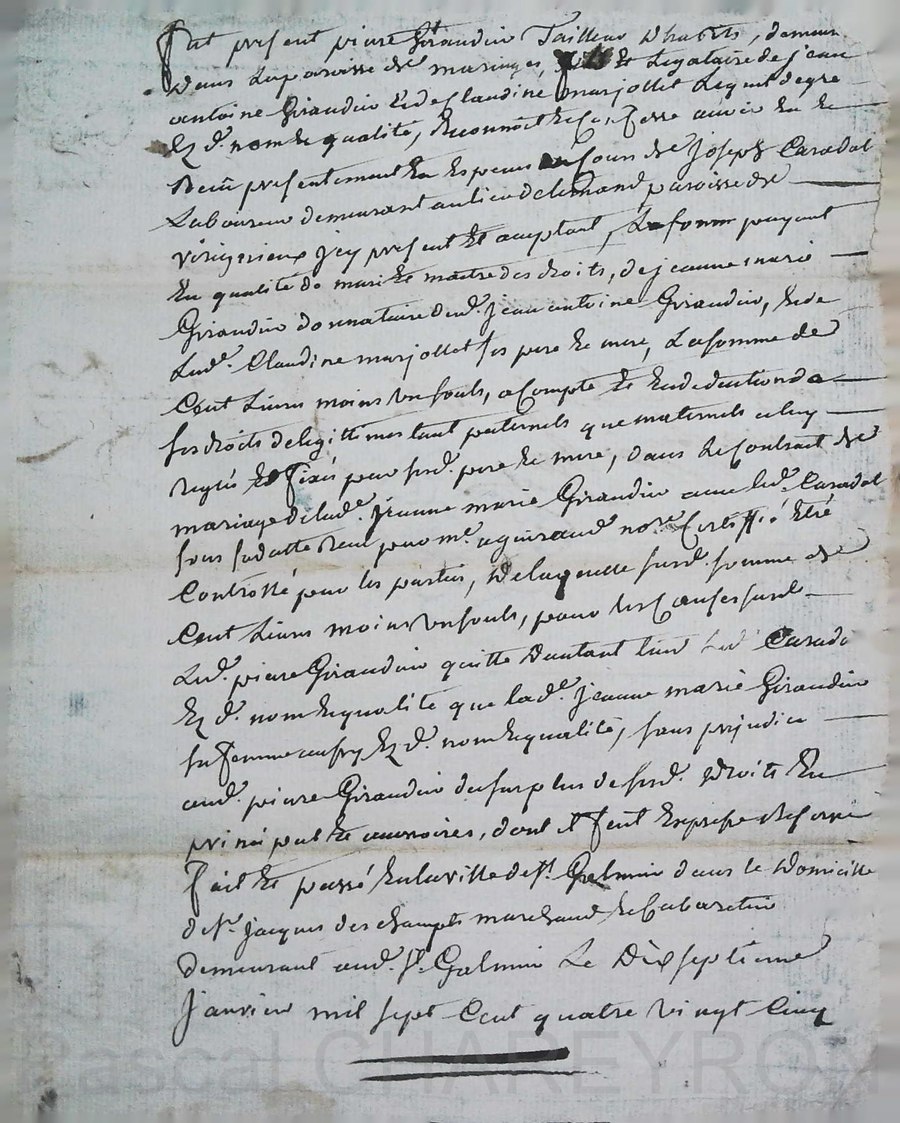 fut present pierre Giraudin Tailleur Dhabits, demeur
dans la paroisse de maringes, fils et Legataire de jean
antoine Giraudin & de Claudine marjollet Lequel de gré
Ez d. nom & qualité, Reconnoit & Confesse avoir Eu &
Receu presentement En Especes du Cours de joseph Caradot
Laboureur demeurant au lieu de paroisse de
virigneux jcy present & aceptant, payant
En qualité de mari & maitre des droits, de jeanne marie
Giraudin donnataire dud. jean antoine Giraudin, & de
Lad.e Claudine marjollet ses pere & mere, La somme de
Cent Livres moins un souls, a Compte & En deduction de
ses droits de legittimes tant paternels que maternels a luy
reglés & fixés par sesd. pere & mere, dans Le Contract de
mariage de lad.e jeanne marie Giraudin avec led. Caradot
sous sa datte Receu par m.e aguiraud no.re Certiffié Etré
Controllé par les parties, De laquelle susd. somme de
Cent Livres moins un souls, pour les Causes susd.
Led. pierre Giraudin quitte Dautant Led Carado
Ez d. nom & qualité que lad.e jeanne marie Giraudin
sa femme aussy Ez d. nom & qualité, sans prejudice
aud. pierre Giraudin du surplus de sesd. Droits En
principal & accessoires, dont il fait Expresse Reserve
fait & passé En la ville de s.t Galmier dans le Domicille
de s.r jacques deschamps marchand & Cabaretier
demeurant aud. s.t Galmier Le Dix septieme
janvier mil sept Cent quatre vingt Cinq
Pascal CHAREYRON